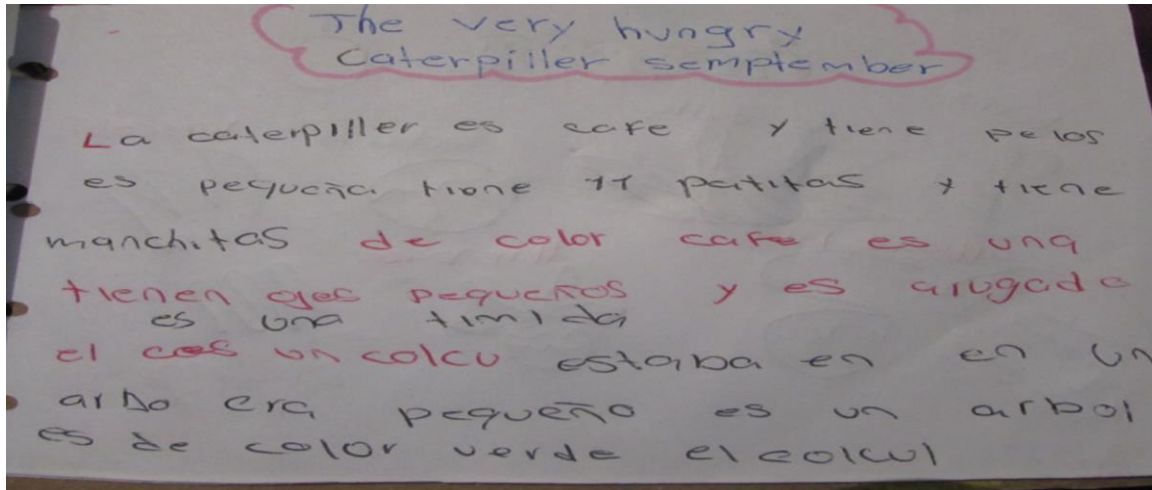 The very hungry
Caterpiller semptember
La caterpiller es cafe y tiene pelos
es pequeña tione 11 patitas y tiene
manchitas de color cafe es una
tienen ojos pequeños y es arugada
es una timida
el un colcu estaba en en un
arbo era pequeño es un arbol
es de color verde el colcul